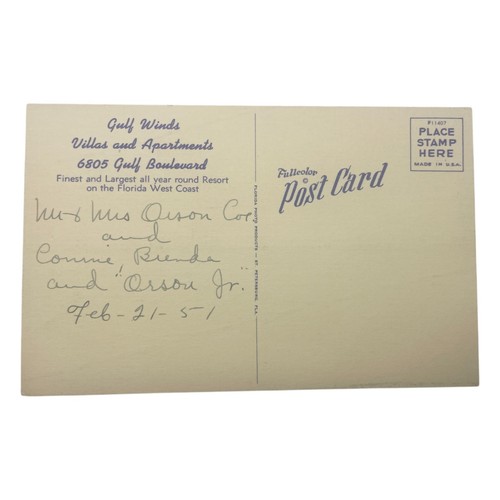 Gulf Winds
Villas and Apartments
6805 Gulf Boulevard
Finest and Largest all year round Resort
on the Florida West Coast
Mr & Mrs Orson Cox
and
Connie, Brenda
and "Orson Jr."
Feb-21-51
FLORIDA PHOTO PRODUCTS - ST. PETERSBURG, FLA.
Fullcolor
©
Post Card
#11407
PLACE
STAMP
HERE
MADE IN U.S.A.